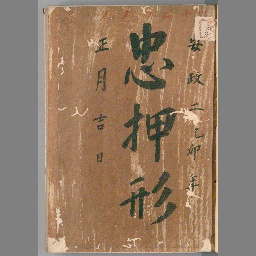 安政二乙卯年
忠押形
正月吉日